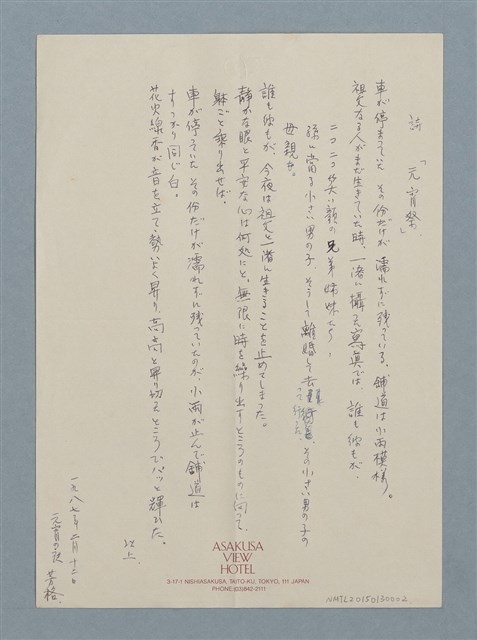 詩 「元宵祭」
車が停まっていた その分だけが 濡れずに残っている。舗道は小雨模様。
祖父なる人がまだ生きていた時、一緒に撮った寫真では、誰も彼もが、
ニコニコ笑い顔の兄弟姉妹たち
孫に當る小さい男の子、そうして離婚して去って行った、その小さい男の子の
母親も。
誰も彼もが、今夜は祖父と一緒に生きることを止めてしまった。
静かな眼と平安な心は何処にと、無限に時を繰り出すところのものに向って、
躰ごと乗り出せば、
車が停っていた その分だけが濡れずに残っていたのが、小雨が止んで舗道は
すっかり同じ白。
花火線香が音を立て、勢いよく昇り、高高と昇り切ったところでパッと輝いた。
以上
一九八七年二月十二日
元宵の夜 芳格
ASAKUSA
VIEW
HOTEL
3-17-1 NISHIASAKUSA, TAITO-KU, TOKYO, 111 JAPAN
PHONE:(03)842-2111
NMTL20150130002